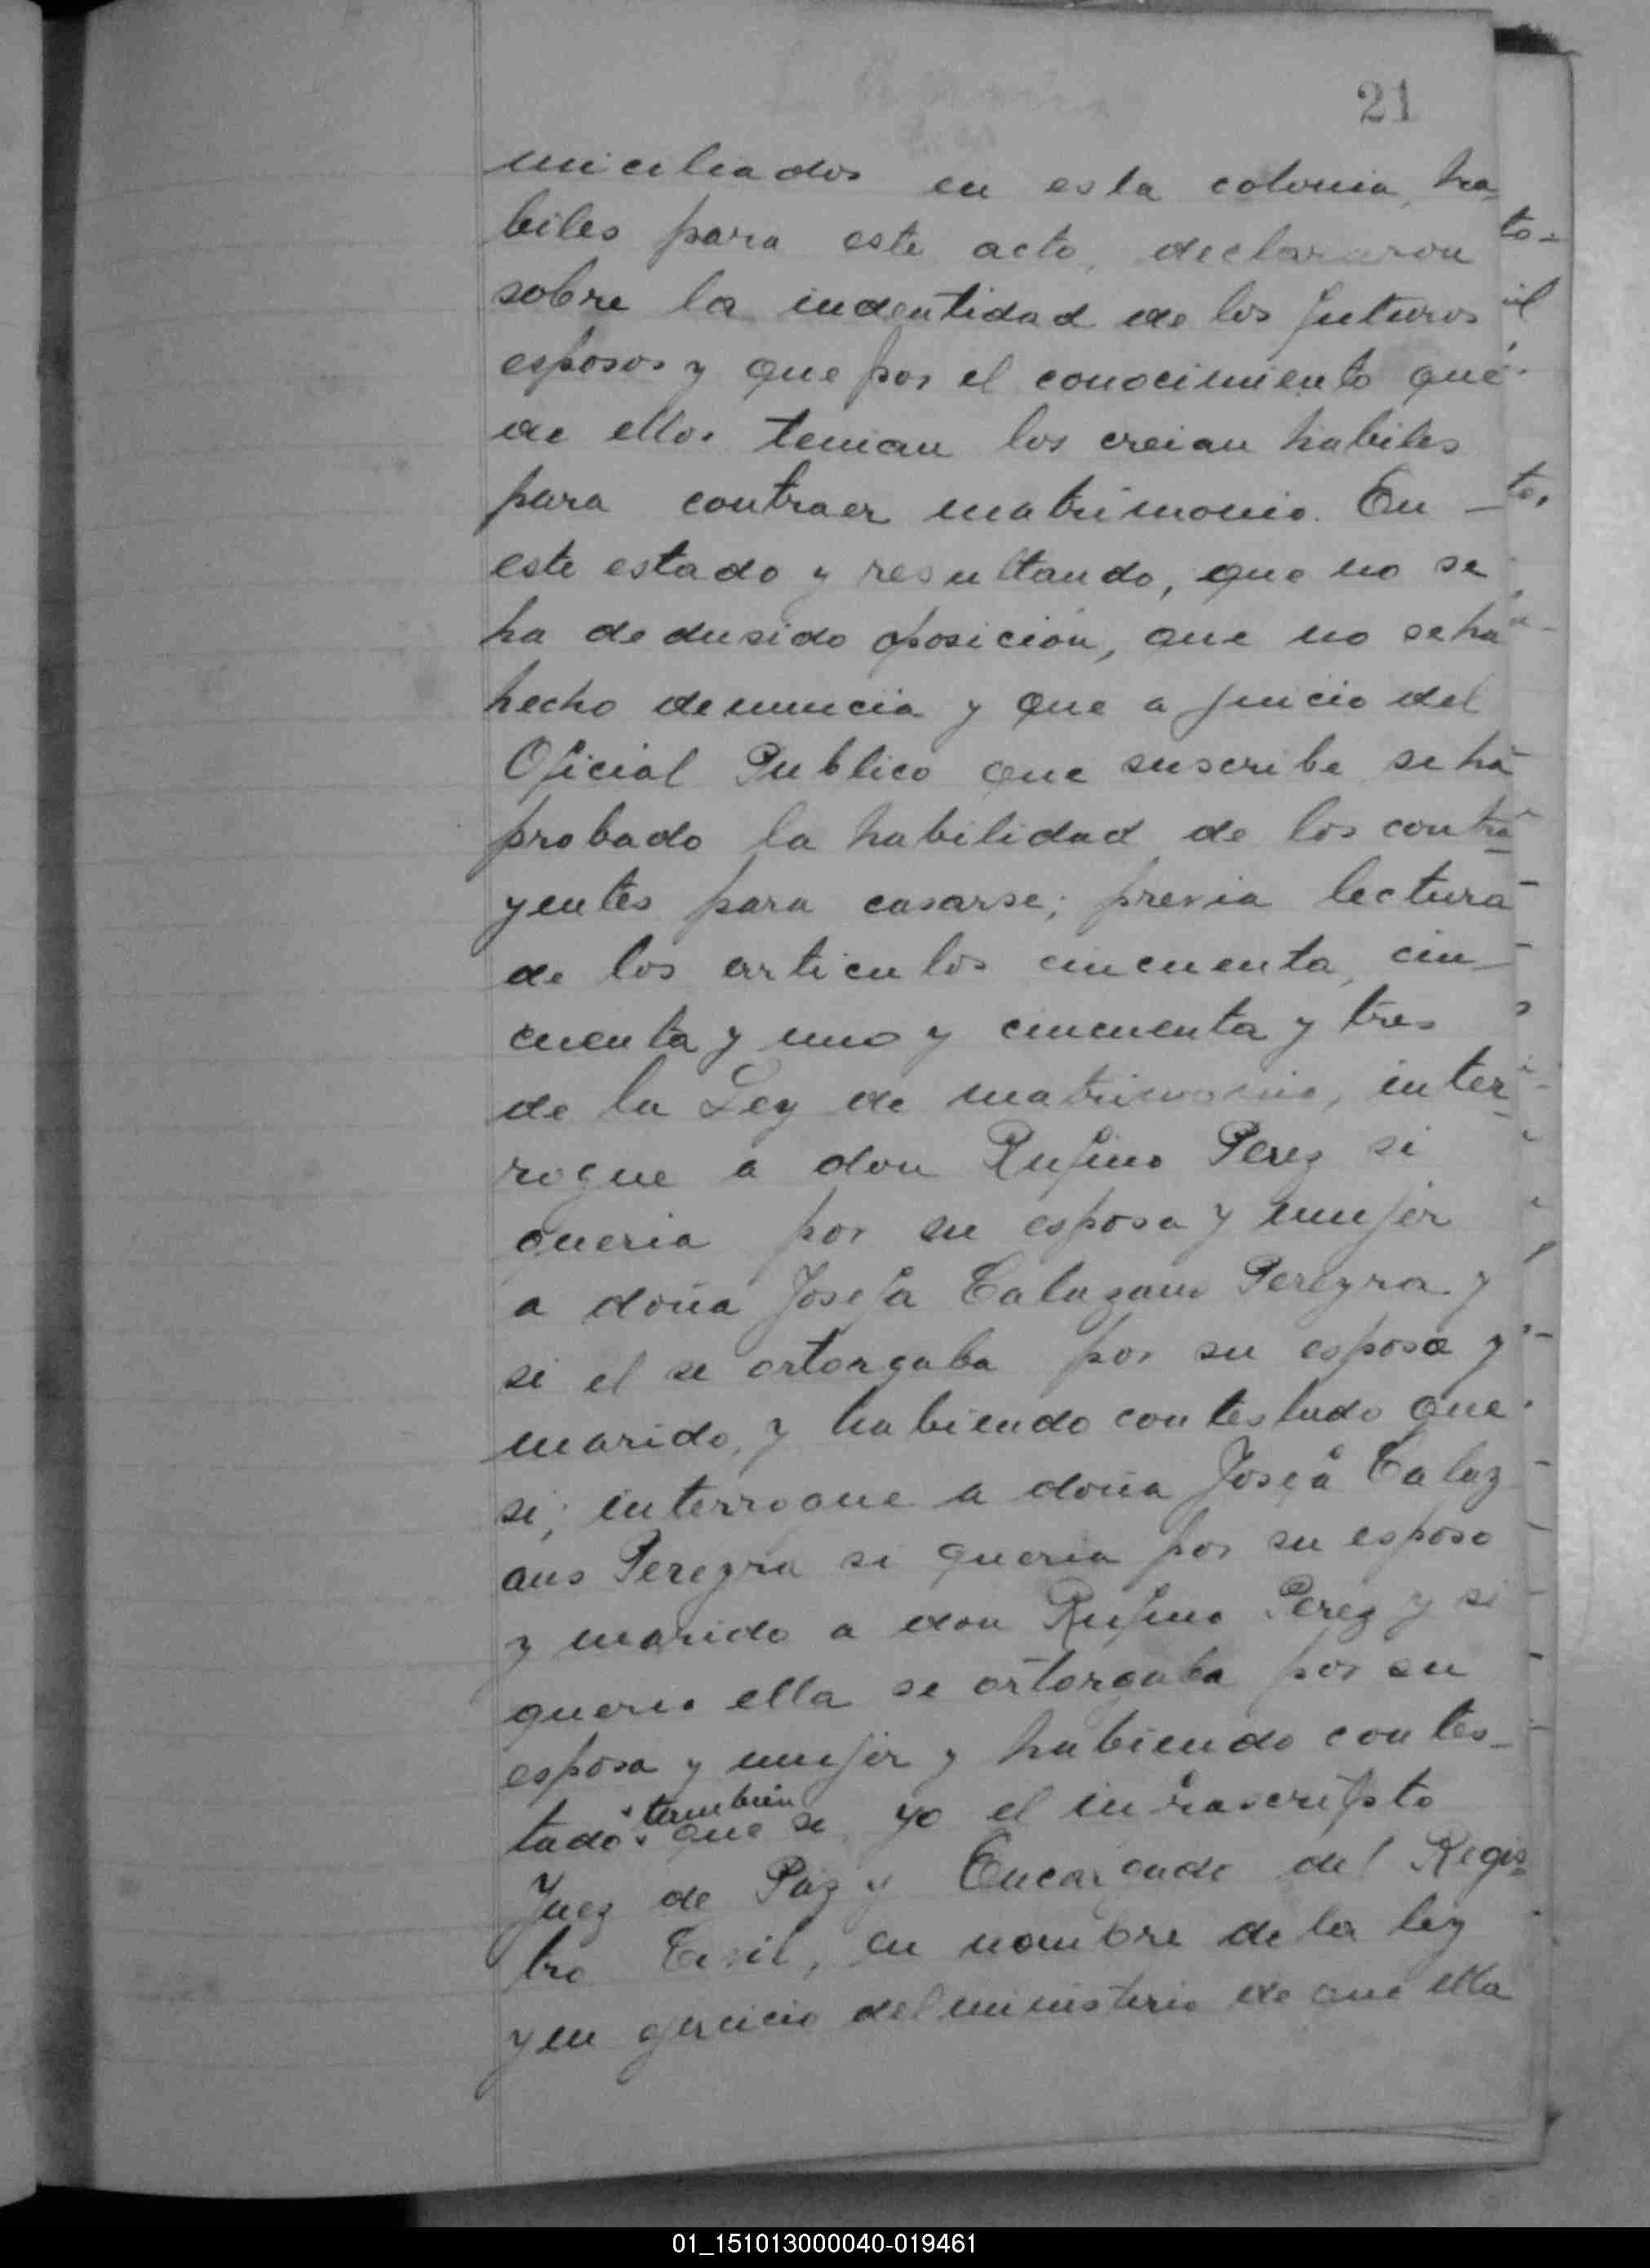 21
miciliados en esta colonia, ha-
biles para este acto, declararon
sobre la indentidad de los futuros
esposos y que por el conocimiento que
de ellos tenian los creian habiles
para contraer matrimonio. En -
este estado y resultando, que no se
ha dedusido oposición, que no se ha
hecho denuncia y que a juicio del
Oficial Publico que suscribe se ha
probado la habilidad de los contra-
yentes para casarse; previa lectura
de los articulos cincuenta, cin-
cuenta y uno y cincuenta y tres
de la Ley de matrimonio, inter-
rogue a don Rufino Perez si
queria por su esposa y mujer
a doña Josefa Calazans Pereyra y
si el se ortorgaba por su esposo y
marido, y habiendo contestado que
si; interrogue a doña Josefa Calaz
ans Pereyra si queria por su esposo
y marido a don Rufino Perez y si
queria ella se ortorgaba por su
esposa y mujer y habiendo contes-
también
tado que si, yo el infrascripto
Juez de Paz y Encargado del Regis-
tro Civil, en nombre de la ley
y en gercicio del ministerio de que ella
01_151013000040-019461